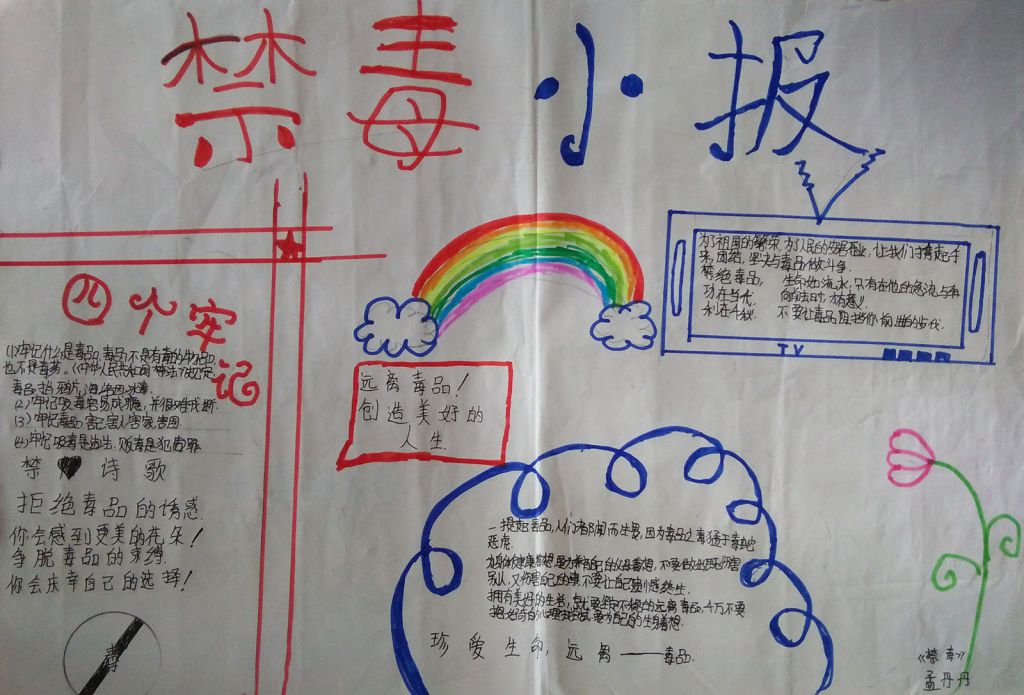 禁毒小报
为了祖国的繁荣,为了人民的安居乐业,让我们手携起手
来,团结,坚决与毒品做斗争.
禁绝毒品, 生命如流水,只有在他的急流与奔
功在当代. 向前去时,才有意义
利在千秋. 不要让毒品阻挡你前进的步伐.
TV
四个牢记
(1)牢记什么是毒品,毒品不是有毒的物品,
也不是毒药。
毒品指鸦片,海洛因,冰毒.
(2)牢记吸毒容易成瘾,并很难戒断.
(3)牢记毒品害己害人害家害国
(4)牢记吸毒是违法.贩毒是犯罪
禁 诗歌
拒绝毒品的诱惑
你会感到更美的花朵!
争脱毒品的束缚.
你会庆幸自己的选择!
毒
远离毒品!
创造美好的
人生.
一提起毒品,人们都闻而生畏,因为毒品之毒猛于毒蛇
恶虎.
别人,又伤害自己的事,不要让自己遗憾终生.
珍爱生命,远离——毒品.
《禁毒》
孟丹丹